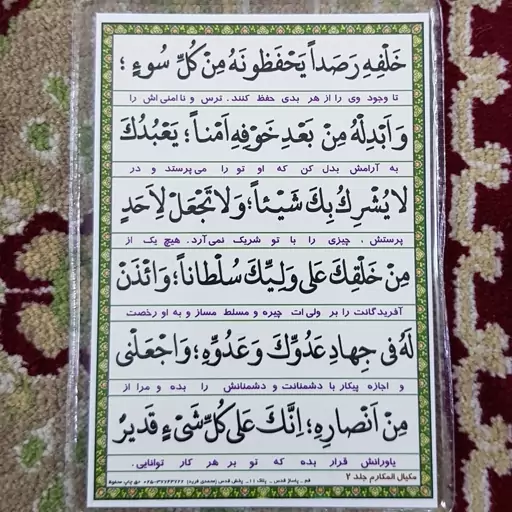 خَلْفِهِ رَصَداً يَحْفَظُونَهُ مِنْ كُلِّ سُوءٍ ؛
تا وجود وی را از هر بدی حفظ کنند. ترس و ناامنی‌اش را
وَاَبْدِلْهُ مِنْ بَعْدِ خَوْفِهِ اَمْناً ؛ يَعْبُدُكَ
به آرامش بدل کن که او تو را می‌پرستد و در
لا يُشْرِكُ بِكَ شَيْئاً ؛ وَلا تَجْعَلْ لِاَحَدٍ
پرستش، چیزی را با تو شریک نمی‌آرد. هیچ یک از
مِنْ خَلْقِكَ عَلى وَلِيِّكَ سُلْطاناً ؛ وَائْذَنْ
آفریدگانت را بر ولی‌ات چیره و مسلط مساز و به او رخصت
لَهُ فى جِهادِ عَدُوِّكَ وَعَدُوِّهِ ؛ وَاجْعَلْنى
و اجازه پیکار با دشمنانت و دشمنانش را بده و مرا از
مِنْ اَنْصارِهِ ؛ اِنَّكَ عَلى كُلِّ شَىْءٍ قَديرٌ
یاورانش قرار بده که تو بر هر کار توانایی.
مکیال المکارم جلد ۲
قم - پاساژ قدس - پلاک ۱۱ - پخش قدس (محمدی فرید) ۳۷۷۴۳۴۲۲-۰۲۵ حق چاپ محفوظ